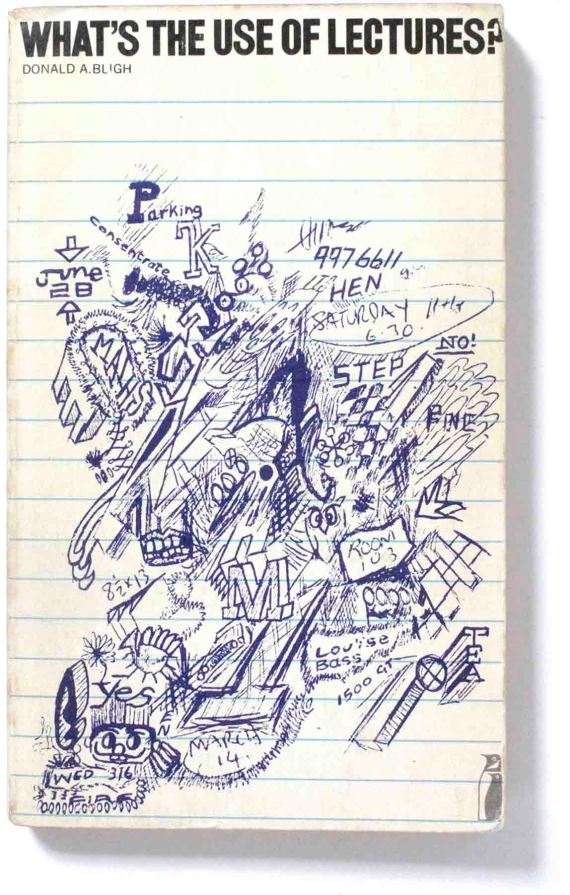 WHAT'S THE USE OF LECTURES?
DONALD A. BLIGH
Parking
Consentrate
K
June
28
9976611
HEN
SATURDAY
6.30
NO!
STEP
M1
ROOM
103
M
8½x13
Louise
Bass
1500 GT
TEA
Yes
MARCH
14
WED 316